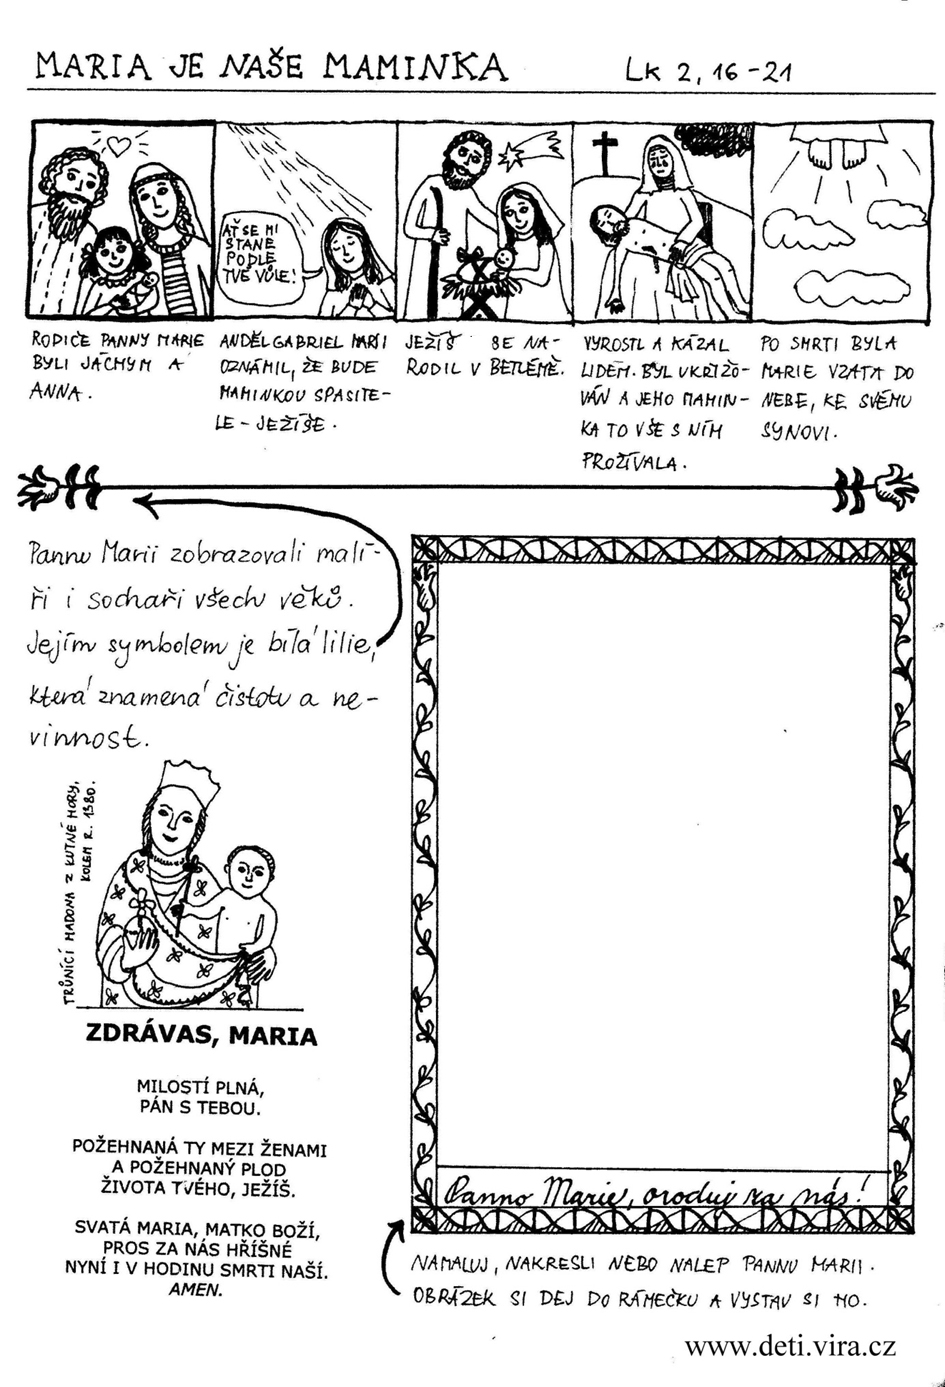 MARIA JE NAŠE MAMINKA
Lk 2, 16-21
AŤ SE MI
STANE
PODLE
TVÉ VŮLE!
RODIČE PANNY MARIE
BYLI JÁCHYM A
ANNA.
ANDĚL GABRIEL MARII
OZNÁMIL, ŽE BUDE
MAMINKOU SPASITE-
LE - JEŽÍŠE.
JEŽÍŠ SE NA-
RODIL V BETLÉMĚ.
VYROSTL A KÁZAL
LIDEM. BYL UKŘIŽO-
VÁN A JEHO MAMIN-
KA TO VŠE S NÍM
PROŽÍVALA.
PO SMRTI BYLA
MARIE VZATA DO
NEBE, KE SVÉMU
SYNOVI.
Pannu Marii zobrazovali malí-
ři i sochaři všech věků.
Jejím symbolem je bílá lilie,
která znamená čistotu a ne-
vinnost.
TRŮNÍCÍ MADONA Z KUTNÉ HORY,
KOLEM R. 1380.
ZDRÁVAS, MARIA
MILOSTÍ PLNÁ,
PÁN S TEBOU.
POŽEHNANÁ TY MEZI ŽENAMI
A POŽEHNANÝ PLOD
ŽIVOTA TVÉHO, JEŽÍŠ.
SVATÁ MARIA, MATKO BOŽÍ,
PROS ZA NÁS HŘÍŠNÉ
NYNÍ I V HODINU SMRTI NAŠÍ.
AMEN.
Panno Marie, oroduj za nás!
NAMALUJ, NAKRESLI NEBO NALEP PANNU MARII.
OBRÁZEK SI DEJ DO RÁMEČKU A VYSTAV SI HO.
www.deti.vira.cz